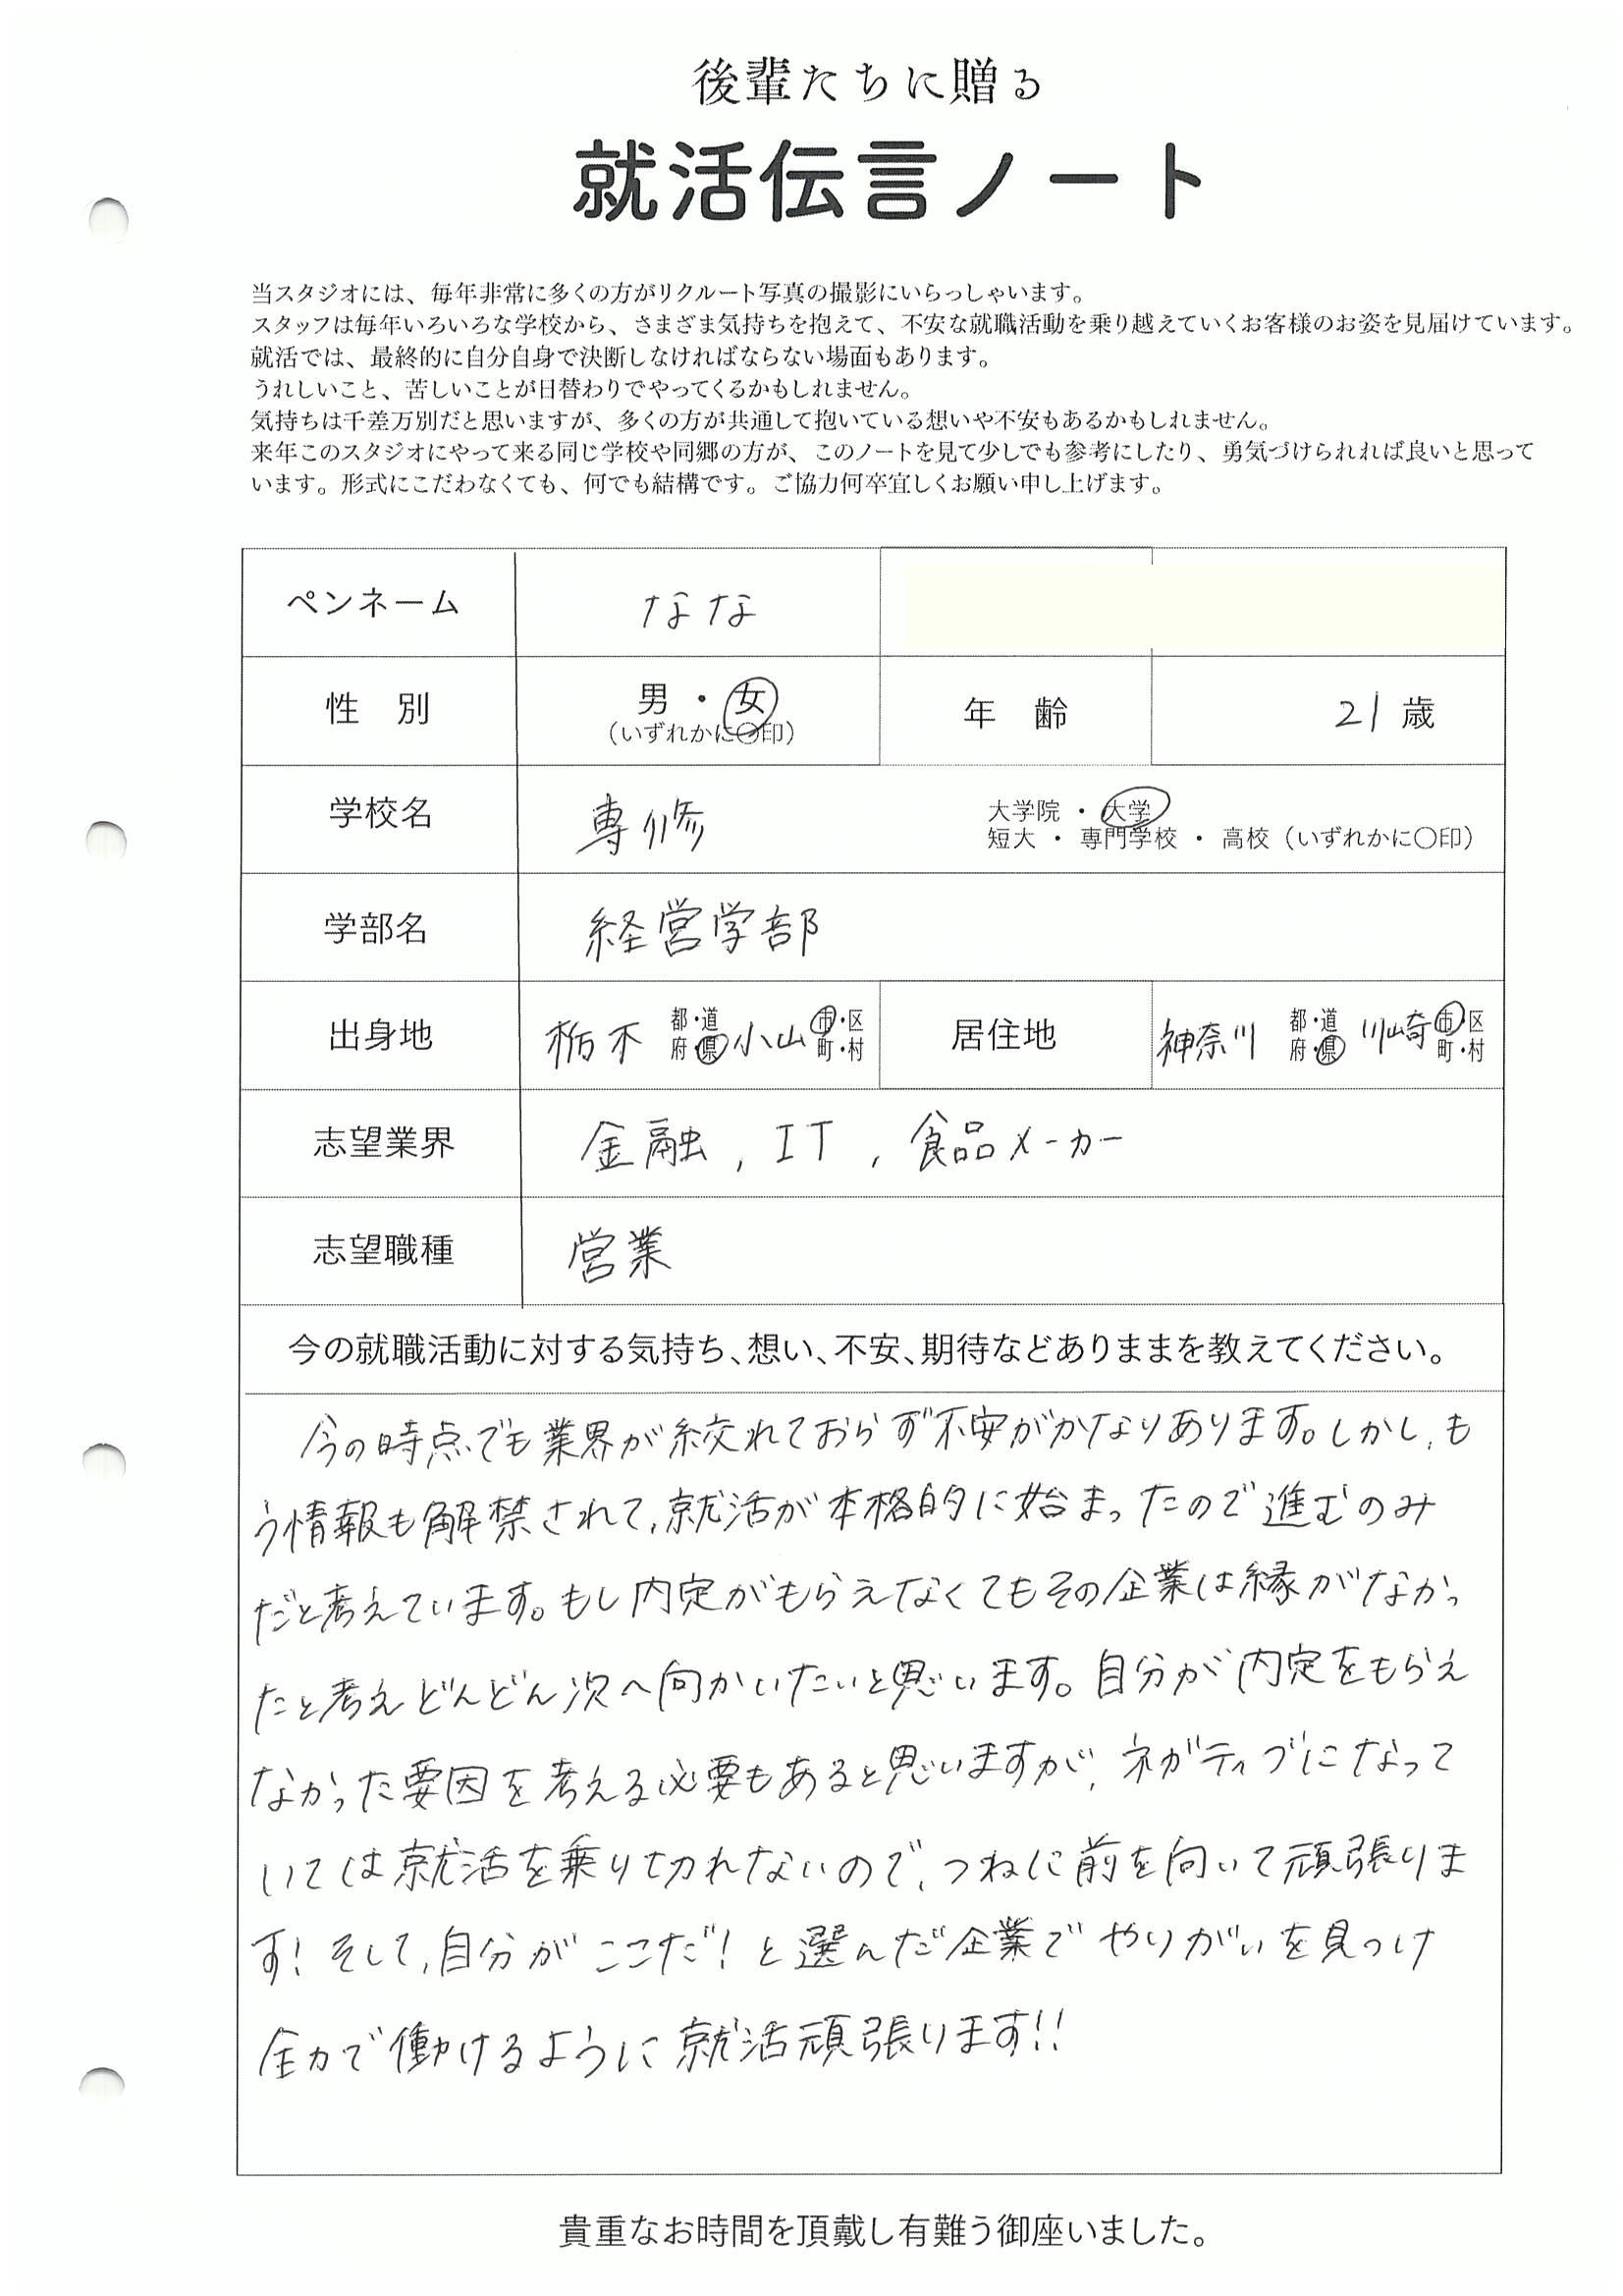 後輩たちに贈る
就活伝言ノート
当スタジオには、毎年非常に多くの方がリクルート写真の撮影にいらっしゃいます。
スタッフは毎年いろいろな学校から、さまざま気持ちを抱えて、不安な就職活動を乗り越えていくお客様のお姿を見届けています。
就活では、最終的に自分自身で決断しなければならない場面もあります。
うれしいこと、苦しいことが日替わりでやってくるかもしれません。
気持ちは千差万別だと思いますが、多くの方が共通して抱いている想いや不安もあるかもしれません。
来年このスタジオにやって来る同じ学校や同郷の方が、このノートを見て少しでも参考にしたり、勇気づけられれば良いと思って
います。形式にこだわなくても、何でも結構です。ご協力何卒宜しくお願い申し上げます。
ペンネーム なな
性 別 男 ・ 女 年 齢 21 歳
(いずれかに〇印)
学校名 専修 大学院 ・ 大学
短大 ・ 専門学校 ・ 高校 (いずれかに〇印)
学部名 経営学部
出身地 栃木 都・道 府・県 小山 市・区 町・村 居住地 神奈川 都・道 府・県 川崎 市・区 町・村
志望業界 金融, IT, 食品メーカー
志望職種 営業
今の就職活動に対する気持ち、想い、不安、期待などありままを教えてください。
今の時点でも業界が絞れておらず不安がかなりあります。しかし、も
う情報も解禁されて、就活が本格的に始まったので進むのみ
だと考えています。もし内定がもらえなくてもその企業は縁がなかっ
たと考えどんどん次へ向かいたいと思います。自分が内定をもらえ
なかった要因を考える必要もあると思いますが、ネガティブになって
いては就活を乗り切れないので、つねに前を向いて頑張りま
す! そして、自分がここだ!と選んだ企業でやりがいを見つけ
全力で働けるように就活頑張ります!!
貴重なお時間を頂戴し有難う御座いました。